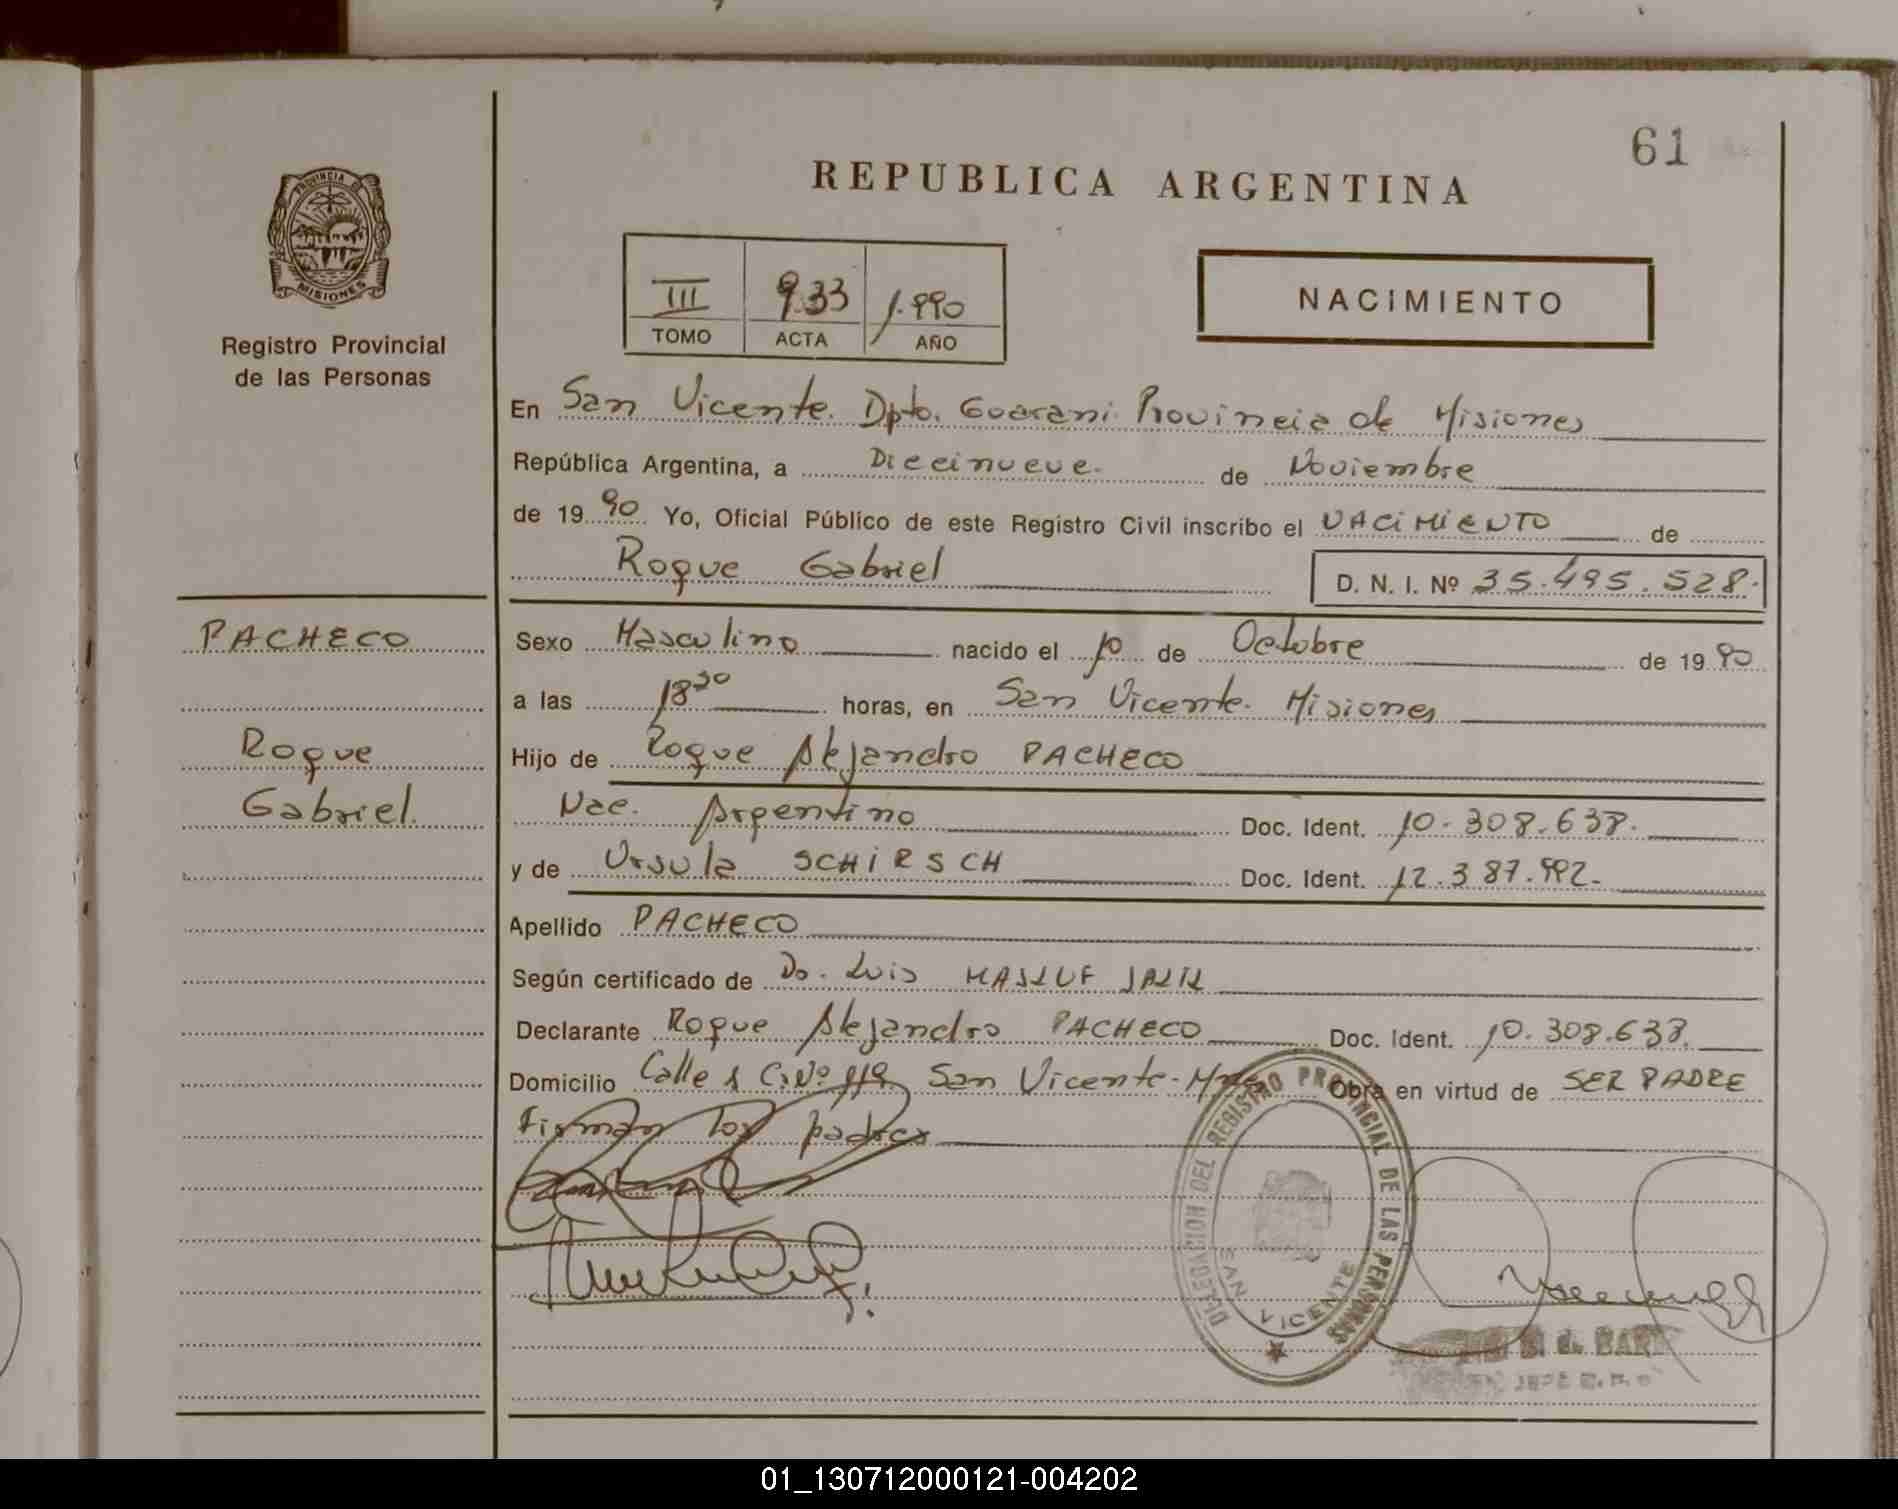 61
REPUBLICA ARGENTINA
PROVINCIA DE
MISIONES
Registro Provincial
de las Personas
III 933 1.990
TOMO ACTA AÑO
NACIMIENTO
En San Vicente. Dpto. Guarani. Provincia de Misiones
República Argentina, a Diecinueve. de Noviembre
de 1990 Yo, Oficial Público de este Registro Civil inscribo el NACIMIENTO de
Roque Gabriel D. N. I. Nº 35.495.528.
PACHECO
Roque
Gabriel.
Sexo Masculino nacido el 10 de Octubre de 1990
a las 18 horas, en San Vicente. Misiones
Hijo de Roque Alejandro PACHECO
Nac. Argentino Doc. Ident. 10.308.638.
y de Ursula SCHIRSCH Doc. Ident. 12.387.992.
Apellido PACHECO
Según certificado de Dr. Luis
Declarante Roque Alejandro PACHECO Doc. Ident. 10.308.638.
Domicilio Calle San Vicente-Mnes Obra en virtud de SER PADRE
Firman los padres
DELEGACION DEL REGISTRO PROVINCIAL DE LAS PERSONAS
SAN VICENTE
01_130712000121-004202